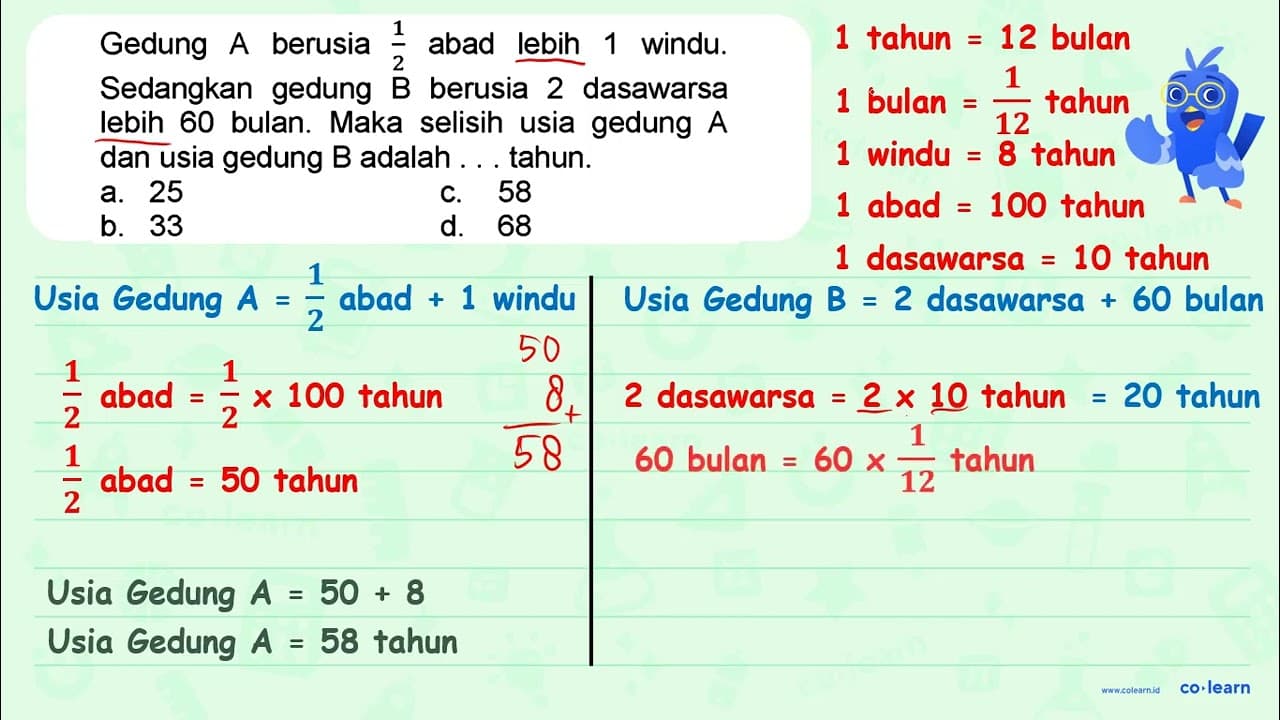 Gedung A berusia 1/2 abad lebih 1 windu.
Sedangkan gedung B berusia 2 dasawarsa
lebih 60 bulan. Maka selisih usia gedung A
dan usia gedung B adalah . . . tahun.
a. 25 c. 58
b. 33 d. 68
1 tahun = 12 bulan
1 bulan = 1/12 tahun
1 windu = 8 tahun
1 abad = 100 tahun
1 dasawarsa = 10 tahun
Usia Gedung A = 1/2 abad + 1 windu
1/2 abad = 1/2 x 100 tahun
1/2 abad = 50 tahun
50
8 +
58
Usia Gedung A = 50 + 8
Usia Gedung A = 58 tahun
Usia Gedung B = 2 dasawarsa + 60 bulan
2 dasawarsa = 2 x 10 tahun = 20 tahun
60 bulan = 60 x 1/12 tahun
www.colearn.id co·learn